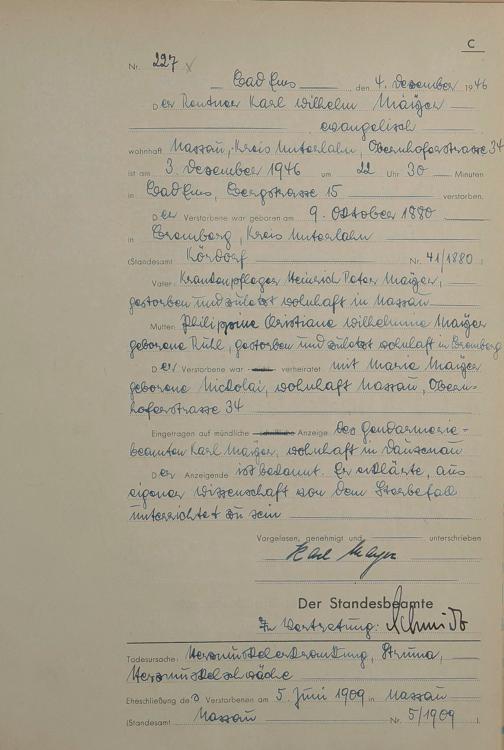 C
Nr. 227
Bad Ems, den 4. Dezember 1946
Der Rentner Karl Wilhelm Maÿer
evangelisch
wohnhaft Nassau, Kreis Unterlahn, Obernhoferstrasse 34
ist am 3. Dezember 1946 um 22 Uhr 30 Minuten
in Bad Ems, Bergstrasse 15 verstorben.
Der Verstorbene war geboren am 9. Oktober 1880
in Bremberg, Kreis Unterlahn
(Standesamt Kördorf Nr. 41/1880)
Vater: Krankenpfleger Heinrich Peter Maÿer,
gestorben und zuletzt wohnhaft in Nassau
Mutter: Philippine Christiane Wilhelmine Maÿer
geborene Rühl, gestorben und zuletzt wohnhaft in Bremberg
Der Verstorbene war nicht verheiratet mit Maria Maÿer
geborene Nickolai, wohnhaft Nassau, Obern-
hoferstrasse 34
Eingetragen auf mündliche schriftliche Anzeige des Gendarmerie-
beamten Karl Maÿer, wohnhaft in Dausenau
Der Anzeigende ist bekannt. Er erklärte, aus
eigener Wissenschaft von dem Sterbefall
unterrichtet zu sein
Vorgelesen, genehmigt und unterschrieben
Karl Mayer
Der Standesbeamte
In Vertretung: Schmidt
Todesursache: Herzmuskelerkrankung, Struma,
Herzmuskelschwäche
Eheschließung des Verstorbenen am 5. Juni 1909 in Nassau
(Standesamt Nassau Nr. 5/1909)